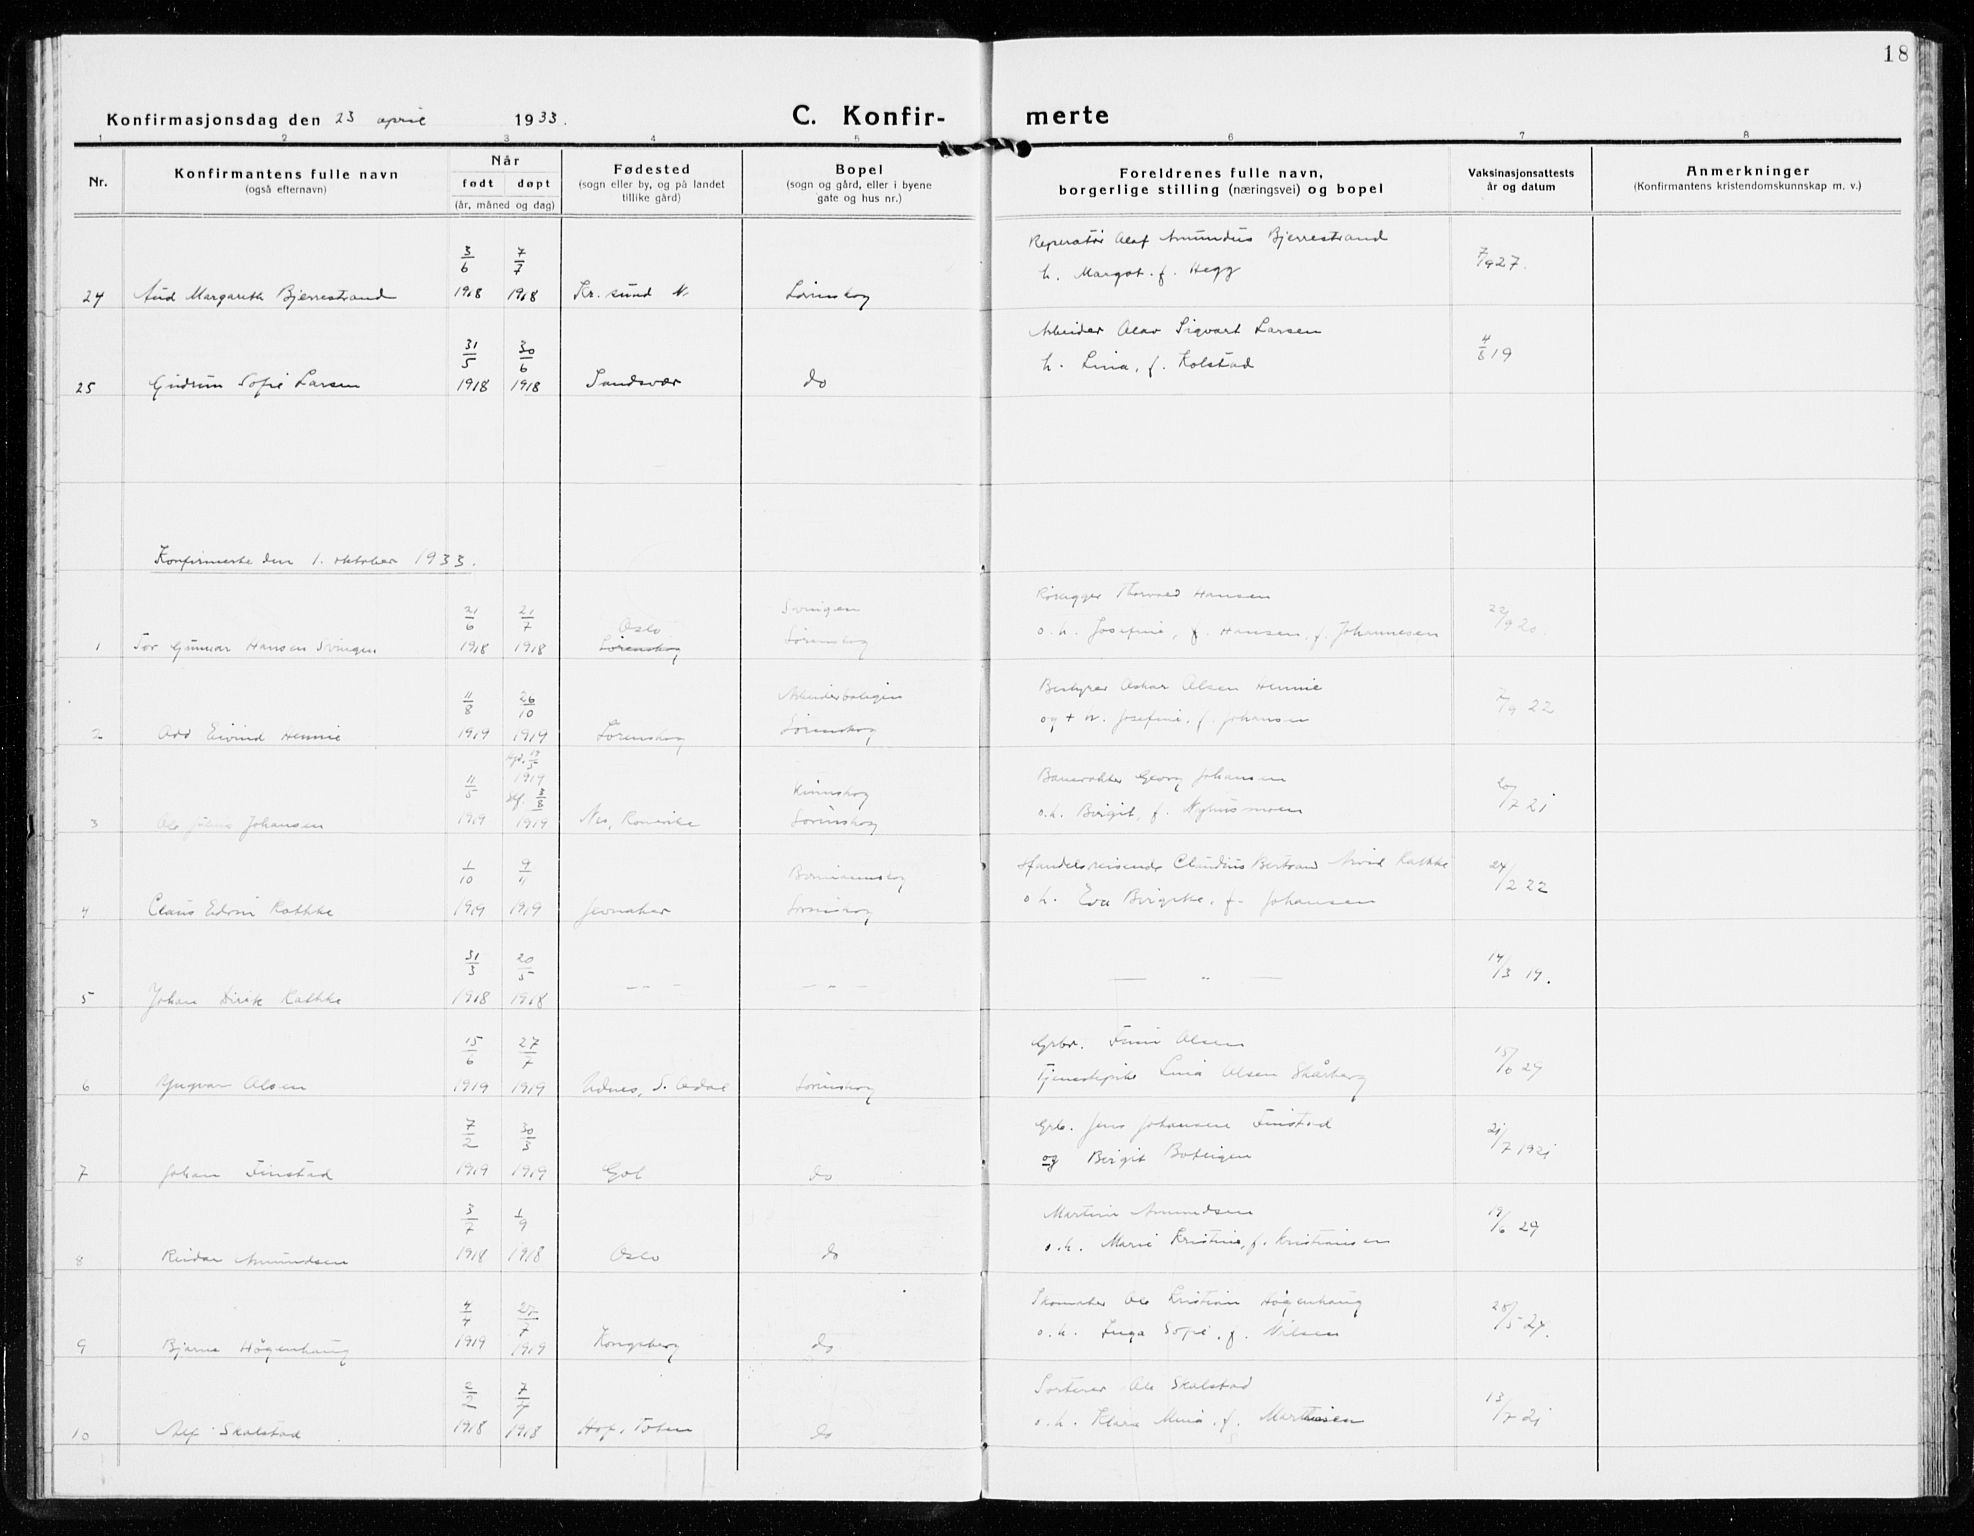 18
Konfirmasjonsdag den 23 april 1933.
C. Konfir- merte
1 2 3 4 5 6 7 8
Nr.
Konfirmantens fulle navn
(også efternavn)
Når
født døpt
(år, måned og dag)
Fødested
(sogn eller by, og på landet
tillike gård)
Bopel
(sogn og gård, eller i byene
gate og hus nr.)
Foreldrenes fulle navn,
borgerlige stilling (næringsvei) og bopel
Vaksinasjonsattests
år og datum
Anmerkninger
(Konfirmantens kristendomskunnskap m. v.)
3/6 7/7 Reperatør Olaf Amundus Bjerrestrand
24 Aud Margareth Bjerrestrand 1918 1918 Kr.sund N. Lørenskog h. Margot. f. Hegg 7/9 27.
31/5 30/6 Arbeider Olav Sigvart Larsen
25 Gudrun Sofie Larsen 1918 1918 Sandsvær do h. Lina, f. Kolstad 4/8 19
Konfirmerte den 1. oktober 1933.
21/6 21/7 Oslo Svingen Thorvald Hansen
1 Tor Gunnar Hansen Svingen 1918 1918 Lørenskog Lørenskog o. h. Josefine, f. Hansen, f. Johannesen 22/9 20.
11/8 26/10 Arbeiderboligen Bestyrer Oskar Olsen Hennie
2 Odd Eivind Hennie 1919 1919 Lørenskog Lørenskog og + h. Josefine, f. Johansen 7/9 22
11/5 hjd. 19/5 1919 Stf. 3/8 Banevokter Georg Johansen
3 Ole Johansen 1919 1919 Nes, Romerike Lørenskog o.h. Birgit, f. Nyhusmoen 20/7 21
1/10 9/11 Handelsreisende Claudius Bertrand Arvid Rathke
4 Claus Edvin Rathke 1919 1919 Jevnaker Lørenskog o h. Eva Birgitte, f. Johansen 24/2 22
31/3 20/5
5 Johan Dirik Rathke 1918 1918 — " — — " — — " — 14/3 19.
15/6 27/7 Grbr. Finn Olsen
6 Yngvar Olsen 1919 1919 Udnes, S. Odal Lørenskog Tjenestepike Lina Olsen Skårberg 15/6 29
7/2 30/3 Grb. Jens Johansen Finstad
7 Johan Finstad 1919 1919 Gol do og Birgit Boteigen 21/7 1921
3/7 1/9 Martin Amundsen
8 Reidar Amundsen 1918 1918 Oslo do o. h. Marie Kristine, f. Kristiansen 19/6 29
4/4 27/7 Skomaker Ole Kristian Høgenhaug
9 Bjarne Høgenhaug 1919 1919 Kongsberg do o. h. Inga Sofie, f. Nilsen 28/5 27.
2/2 7/4 Sorterer Ole Skolstad
10 Alf Skolstad 1918 1918 Hof, Toten do o. h. Klara Mina, f. Marthinsen 13/7 21